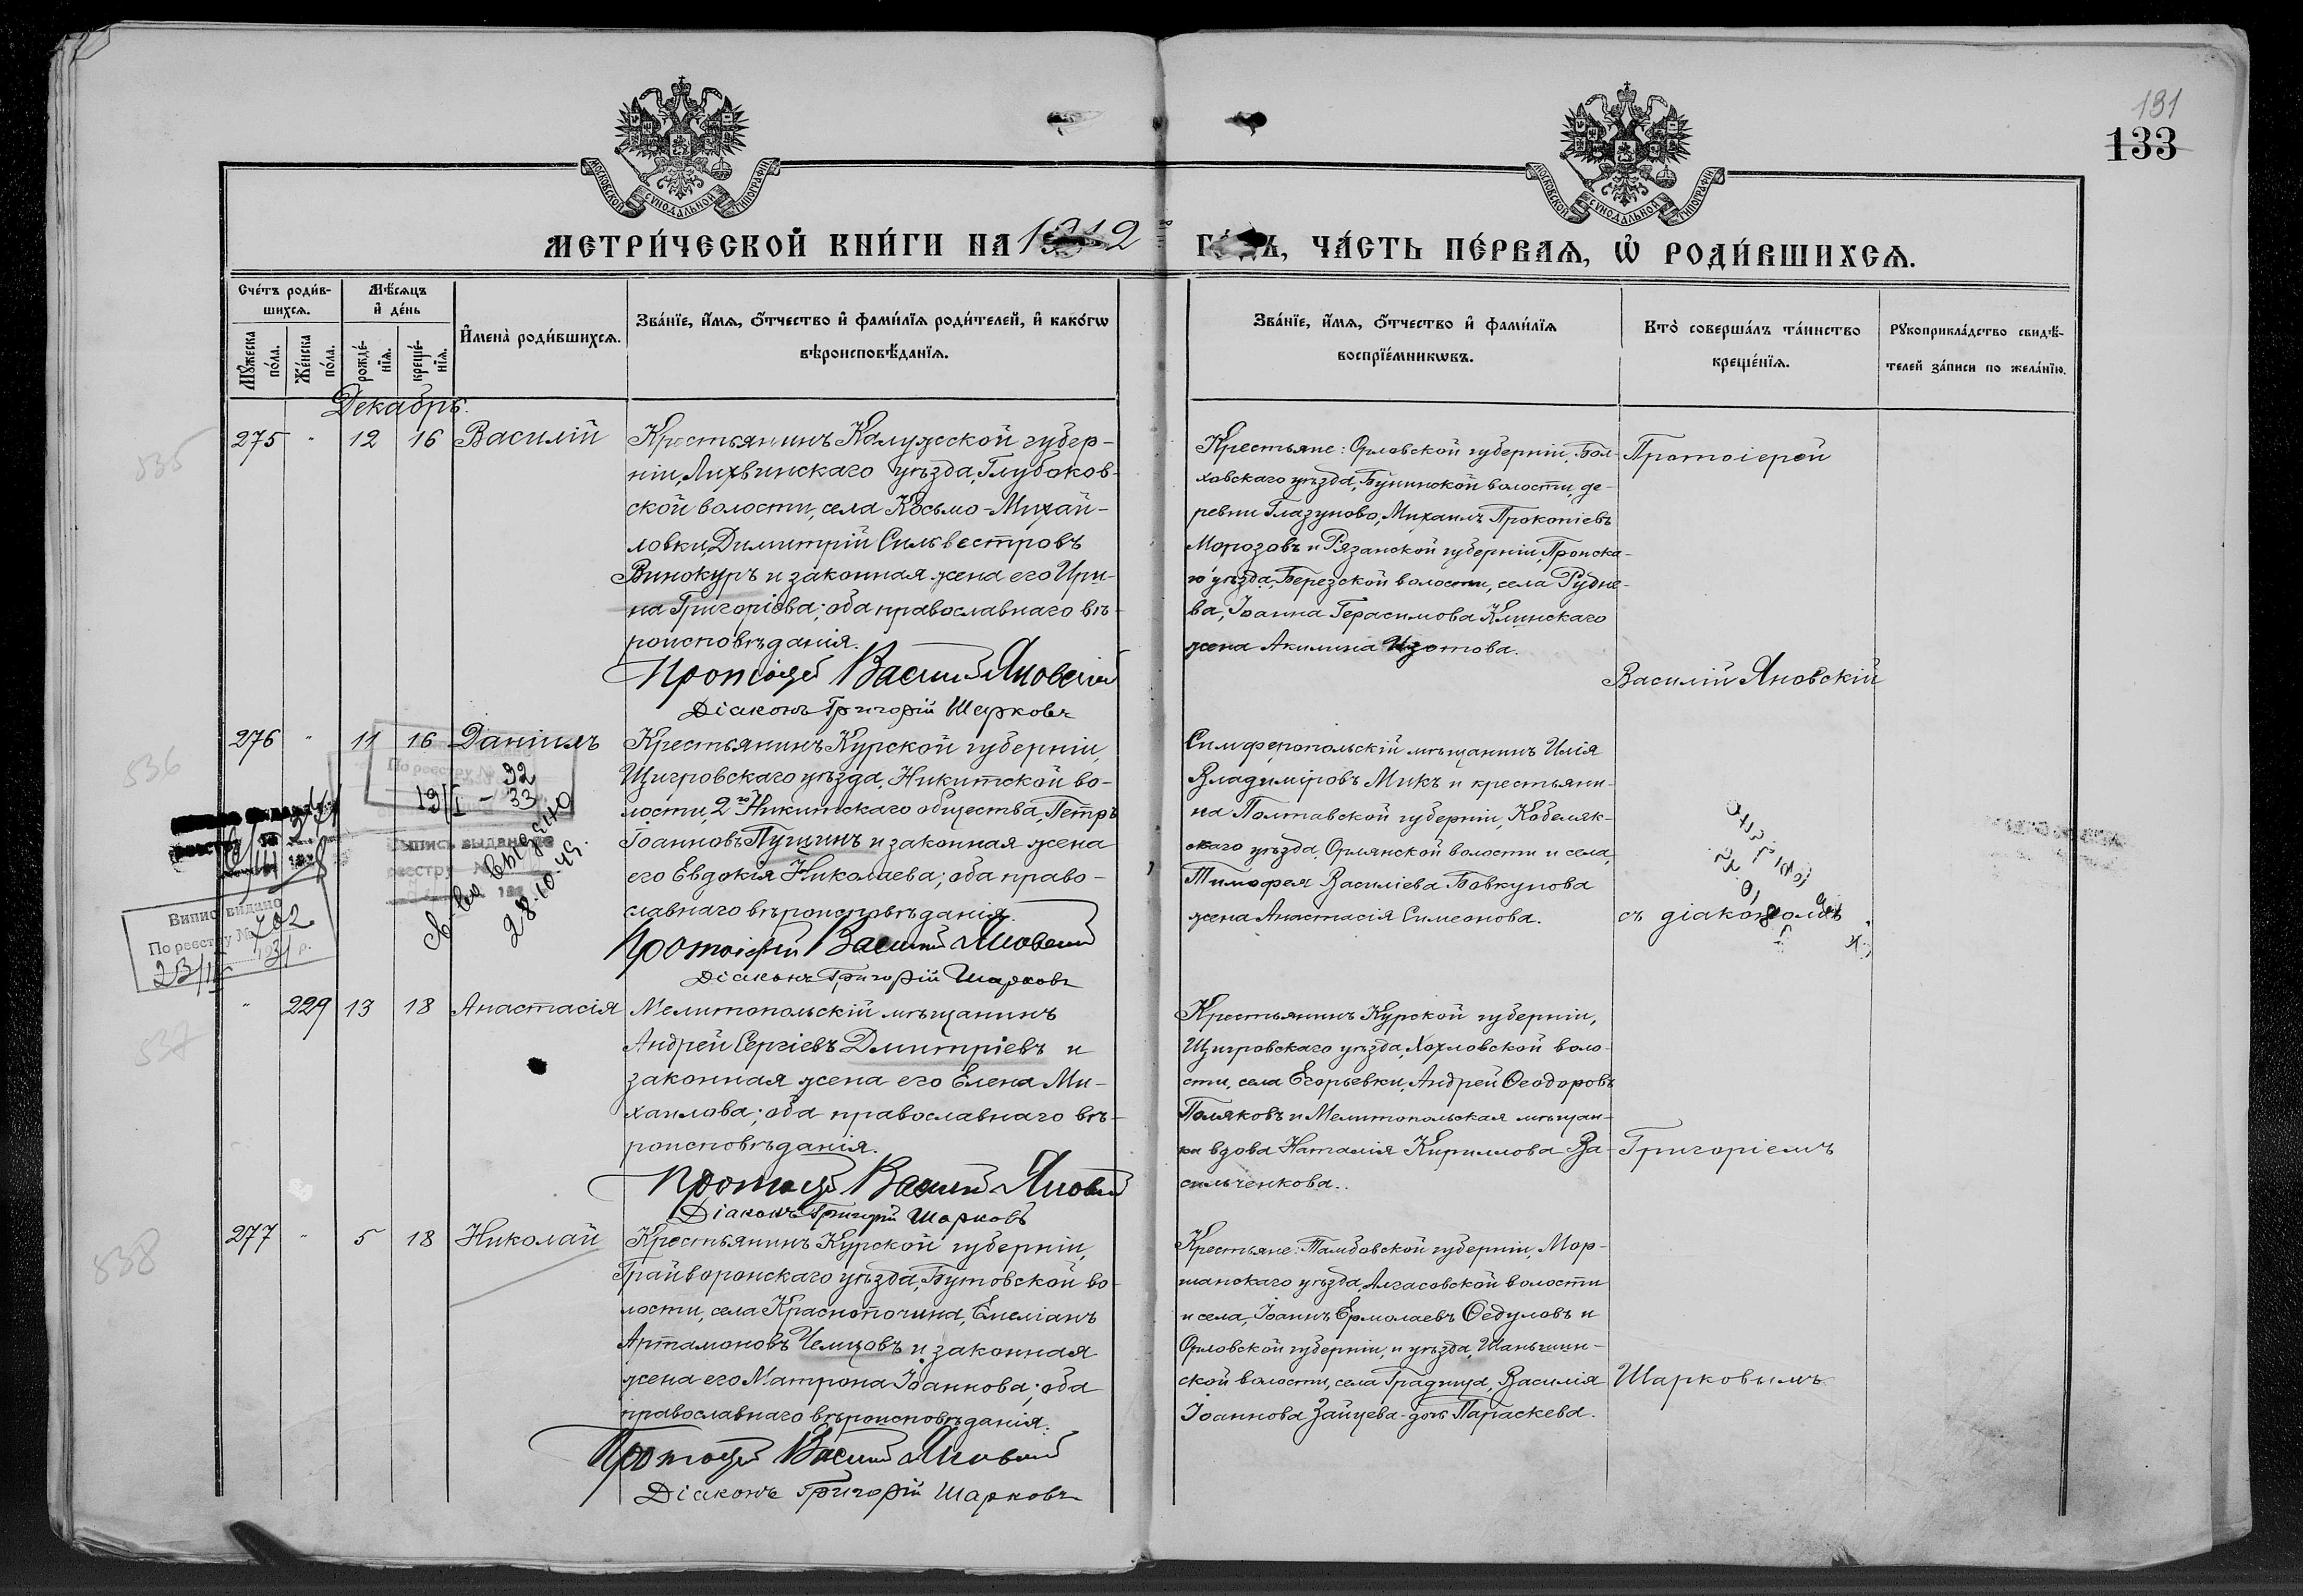 131
133
МОСКОВСКОЙ СѴНОДАЛЬНОЙ ТИПОГРАФІИ
МОСКОВСКОЙ СѴНОДАЛЬНОЙ ТИПОГРАФІИ
МЕТРИ́ЧЕСКОЙ КНИ́ГИ НА 1912 ГО́ДЪ, ЧА́СТЬ ПЕ́РВАѦ, Ѡ҆ РОДИ́ВШИХСѦ.
Сче́тъ роди́в-
шихсѧ.
Мꙋ́жеска по́ла.
Же́нска по́ла.
Мѣ́сѧцъ
и҆ де́нь
рожде́-
нїѧ.
креще́-
нїѧ.
И҆мена̀ роди́вшихсѧ.
Зва́нїе, и҆́мѧ, ѻ҆́тчество и҆ фами́лїѧ роди́телей, и҆ како́гѡ
вѣроисповѣ́данїѧ.
Зва́нїе, и҆́мѧ, ѻ҆́тчество и҆ фами́лїѧ
воспрїе́мникѡвъ.
Кто̀ соверша́лъ та́инство
креще́нїѧ.
Рꙋкоприкла́дство свидѣ́-
телей за́писи по жела́нїю.
Декабрь.
535
275 " 12 16 Василій
Крестьянинъ Калужской губер-
ніи, Лихвинскаго уѣзда, Глубоков-
ской волости, села Косьмо-Михай-
ловки, Димитрій Сильвестровъ
Винокуръ и законная жена его Ири-
на Григоріева; оба православнаго вѣ-
роисповѣданія.
Протоіерей Василій Яновскій
Діаконъ Григорій Шарковъ
Крестьяне: Орловской губерніи, Бол-
ховскаго уѣзда, Бунинской волости, де-
ревни Глазуново, Михаилъ Прокопіевъ
Морозовъ и Рязанской губерніи, Пронска-
го уѣзда, Березской волости, села Рудне-
ва, Іоанна Герасимова Клинскаго
жена Акилина Изотова.
Протоіерей
Василій Яновскій
536
276 " 11 16 Даніилъ
По реестру № 32
19/I - 33
Выпись выдана по
реестру №
Св-во выдано
28-10-45.
Випис видано
По реєстру № 702
23/III 1931 р.
Крестьянинъ Курской губерніи,
Щигровскаго уѣзда, Никитской во-
лости, 2го Никитскаго общества, Петръ
Іоанновъ Пущинъ и законная жена
его Евдокія Николаева; оба право-
славнаго вѣроисповѣданія.
Протоіерей Василій Яновскій
Діаконъ Григорій Шарковъ
Симферопольскій мѣщанинъ Илія
Владиміровъ Микъ и крестьяни-
на Полтавской губерніи, Кобеляк-
скаго уѣзда, Орлянской волости и села,
Тимофея Василіева Бовкунова
жена Анастасія Симеонова.
съ діакономъ
537
" 229 13 18 Анастасія
Мелитопольскій мѣщанинъ
Андрей Сергіевъ Дмитріевъ и
законная жена его Елена Ми-
хаилова; оба православнаго вѣ-
роисповѣданія.
Протоіерей Василій Яновскій
Діаконъ Григорій Шарковъ
Крестьянинъ Курской губерніи,
Щигровскаго уѣзда, Хохловской воло-
сти, села Егорьевки, Андрей Ѳеодоровъ
Поляковъ и Мелитопольская мѣщан-
ка вдова Наталія Кириллова Ва-
сильченкова.
Григоріемъ
538
277 " 5 18 Николай
Крестьянинъ Курской губерніи,
Грайворонскаго уѣзда, Бутовской во-
лости, села Краснопочина, Емеліанъ
Артамоновъ Чемцовъ и законная
жена его Матрона Іоаннова; оба
православнаго вѣроисповѣданія.
Протоіерей Василій Яновскій
Діаконъ Григорій Шарковъ
Крестьяне: Тамбовской губерніи, Мор-
шанскаго уѣзда, Алгасовской волости
и села, Іоаннъ Ермолаевъ Ѳедуловъ и
Орловской губерніи, и уѣзда, Шаньшин-
ской волости, села Традница, Василія
Іоаннова Зайцева дочь Параскева.
Шарковымъ